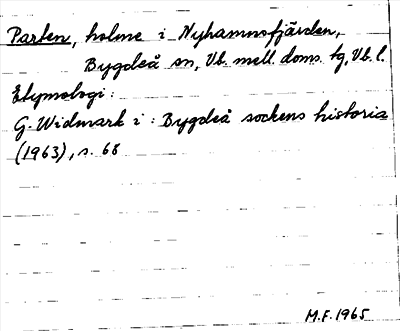 Parten, holme i Nyhamnsfjärden,
Bygdeå sn, Vb. mell. doms. tg, Vb. l.
Etymologi:
G. Widmark i: Bygdeå sockens historia
(1963), s. 68
M.F. 1965